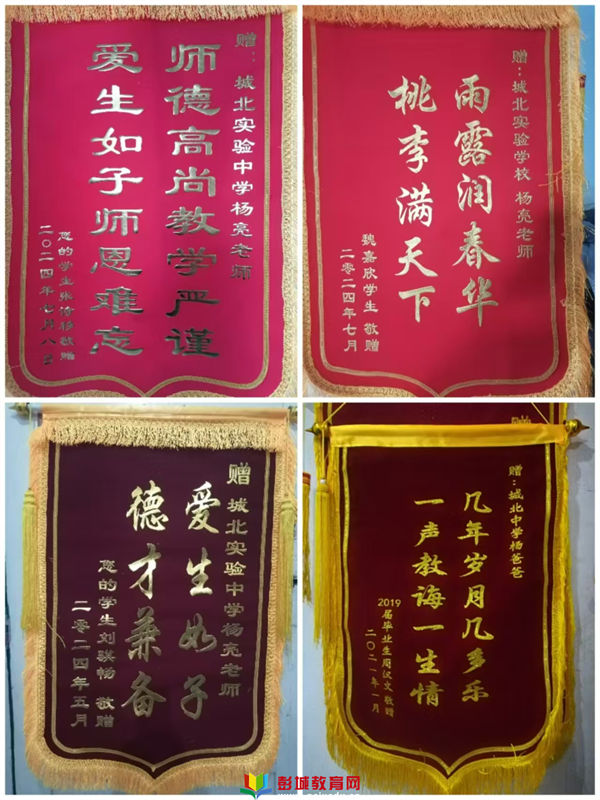 赠：城北实验中学杨亮老师
师德高尚教学严谨
爱生如子师恩难忘
您的学生张
敬赠
二〇二四年七月八日
赠：城北实验学校 杨亮老师
雨露润春华
桃李满天下
魏嘉欣学生 敬赠
二零二四年七月
赠 城北实验中学杨亮老师
爱生如子
德才兼备
您的学生刘骐畅 敬赠
二零二四年五月
赠：城北中学杨爸爸
几年岁月几多乐
一声教诲一生情
2019届毕业生周汉文敬赠
二〇二一年一月
彭城教育网